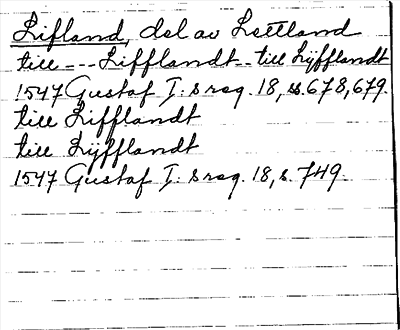 Lifland, del av Lettland
till --- Lifflandt -- till Lÿfflandt
1547 Gustaf I: s reg. 18, s. 678, 679.
till Lifflandt
till Lÿfflandt
1547 Gustaf I: s reg. 18, s. 749.